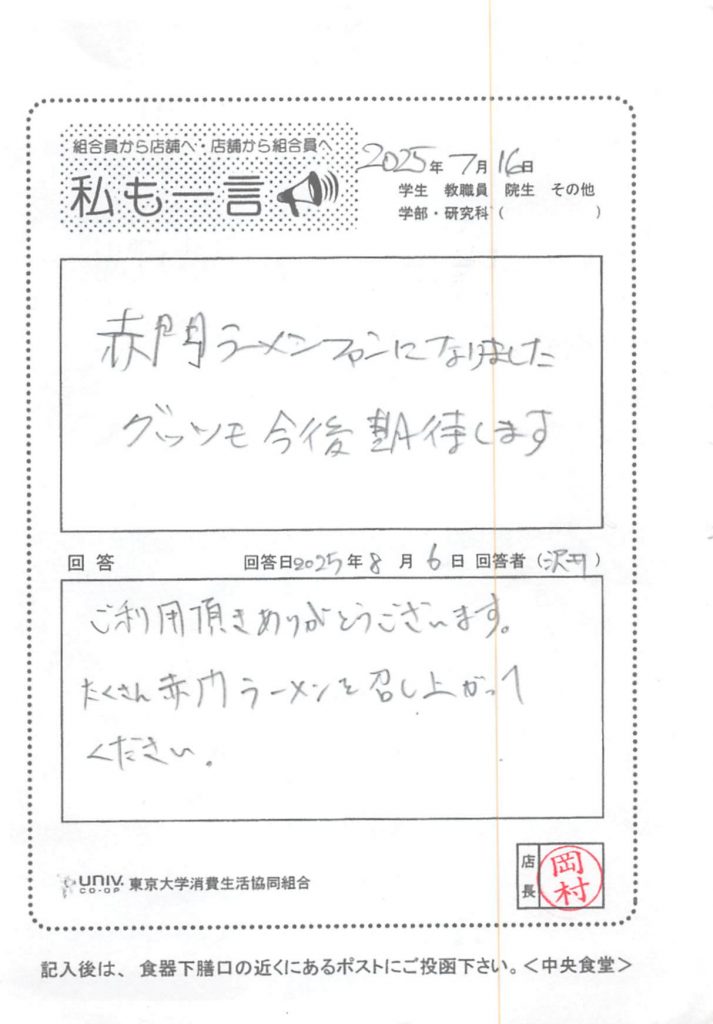 組合員から店舗へ・店舗から組合員へ
私も一言
2025年7月16日
学生 教職員 院生 その他
学部・研究科（ ）
赤門ラーメンファンになりました
グッツも今後期待します
回答 回答日2025年8月6日 回答者（沢井）
ご利用頂きありがとうございます。
たくさん赤門ラーメンを召し上がって
ください。
UNIV. CO-OP 東京大学消費生活協同組合
店長 岡村
記入後は、食器下膳口の近くにあるポストにご投函下さい。＜中央食堂＞